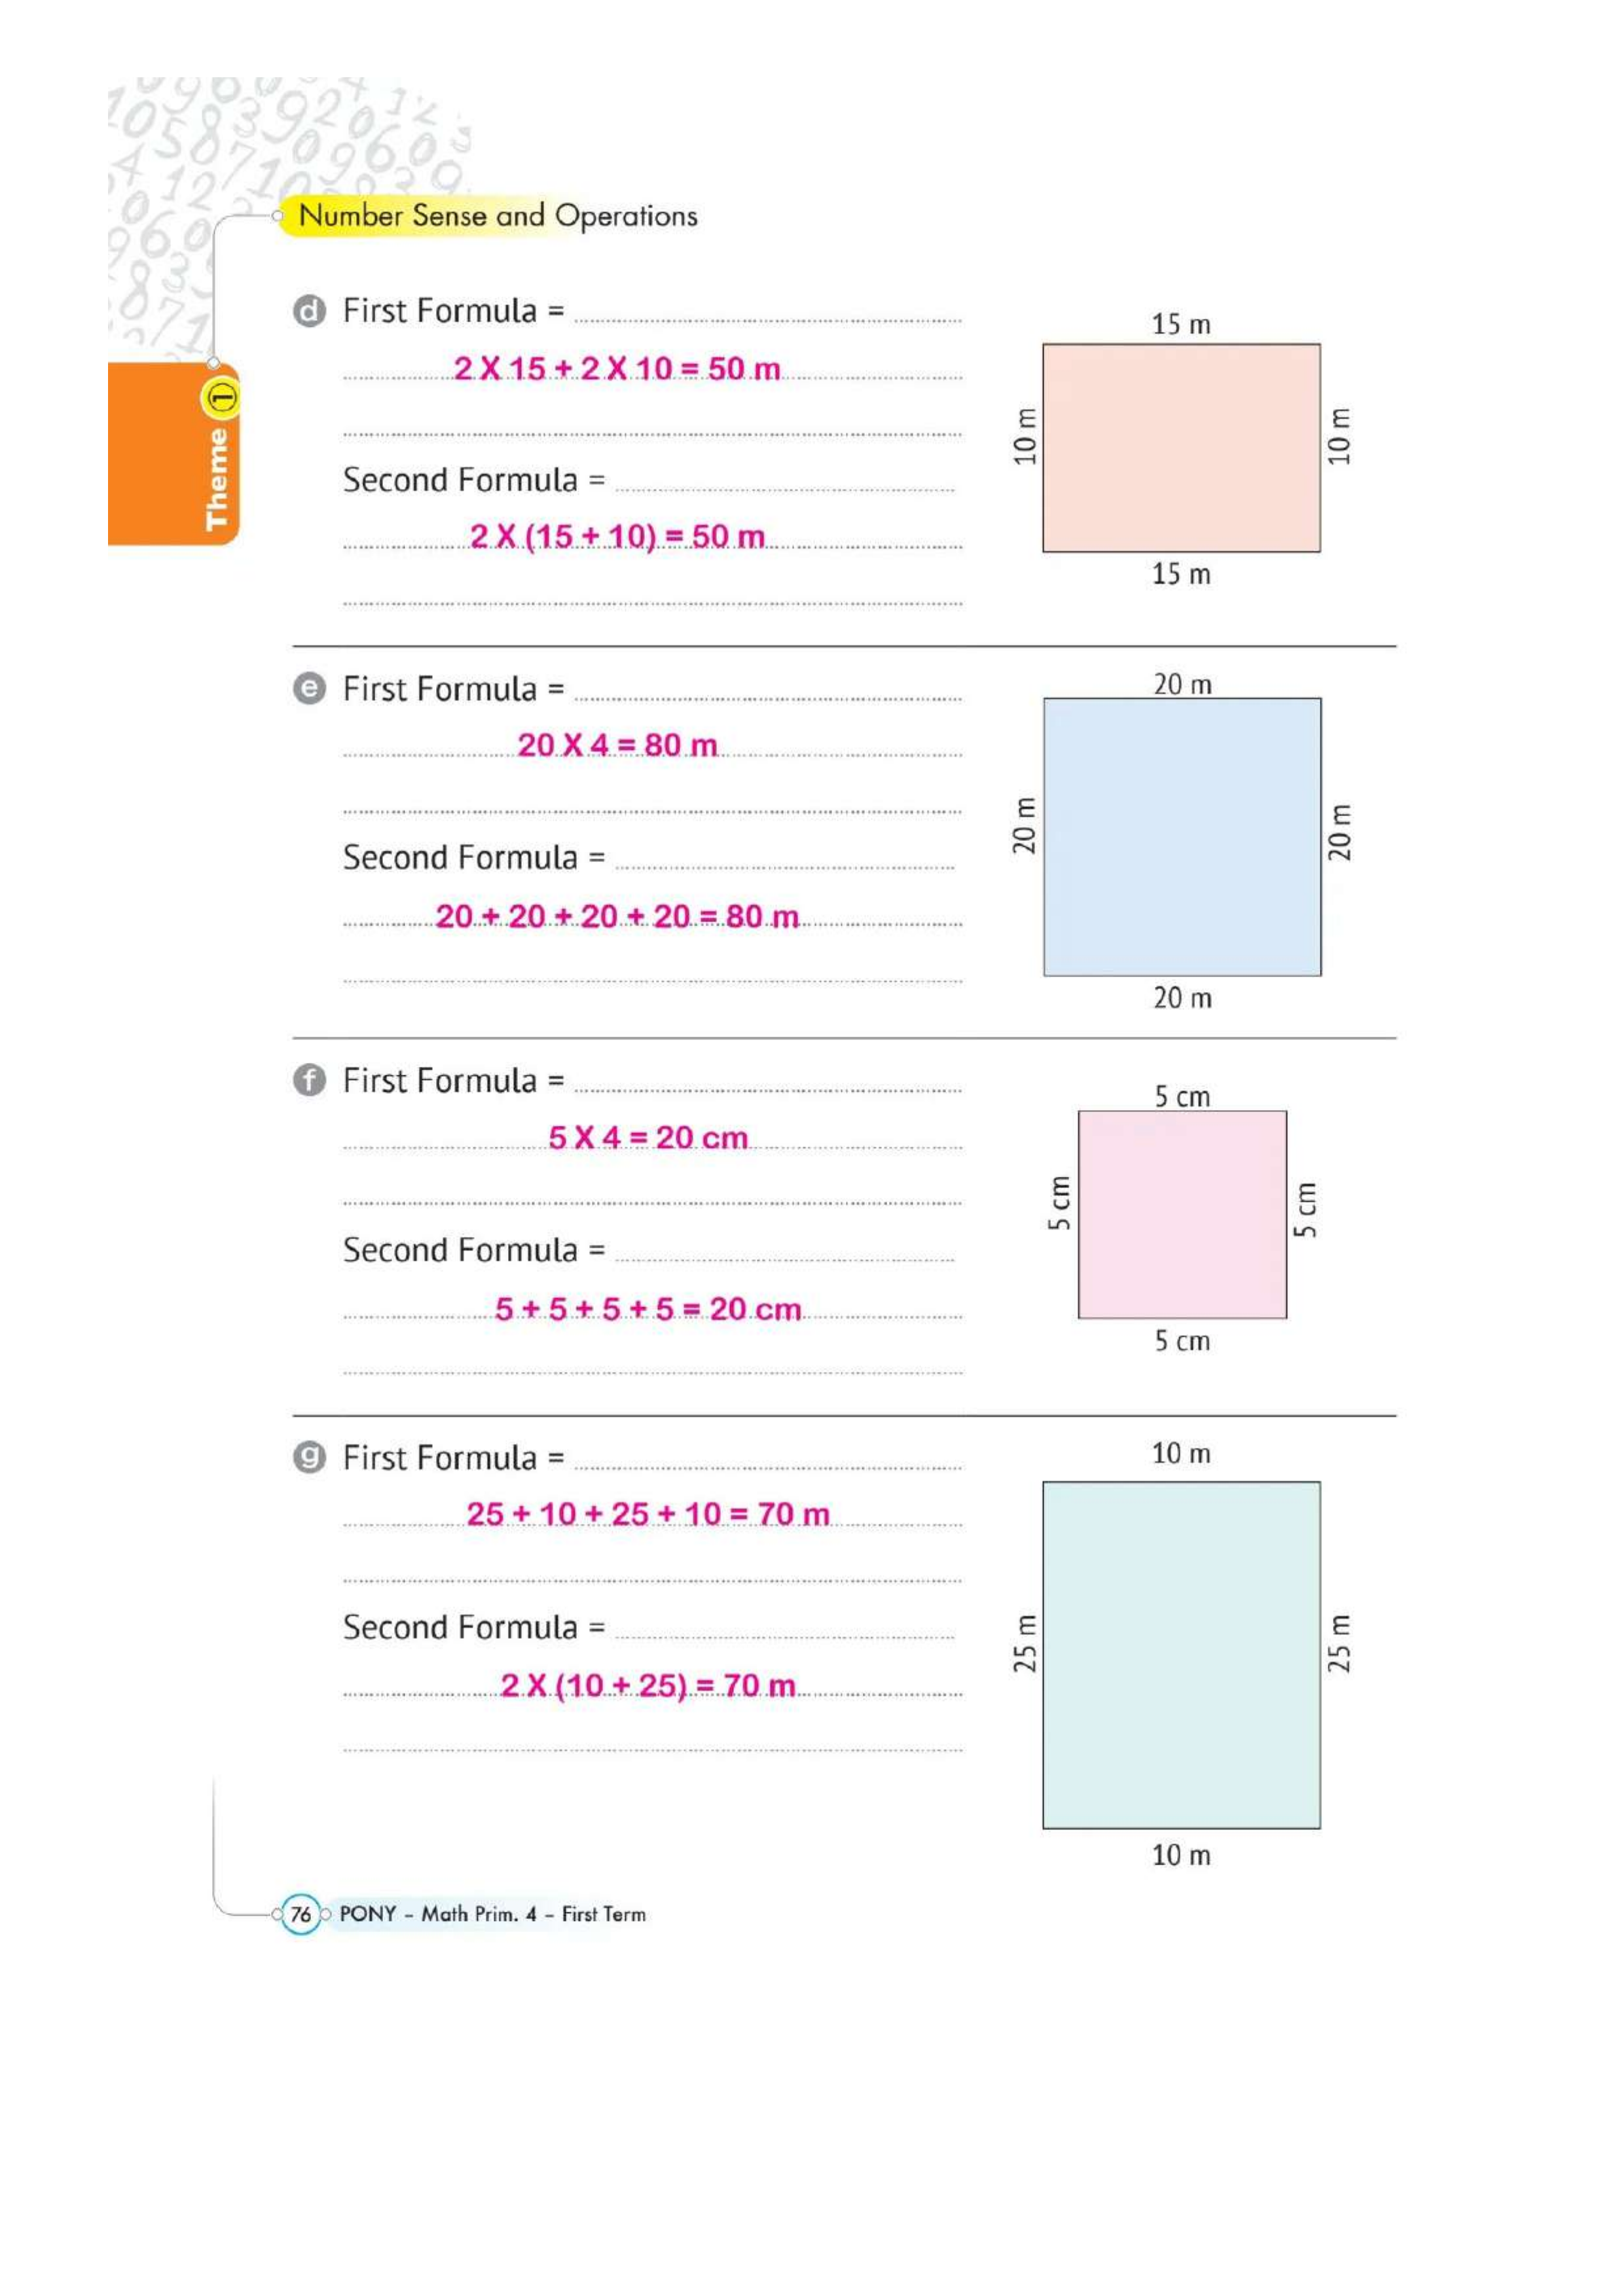 Number Sense and Operations
Theme 1
d First Formula =
2 X 15 + 2 X 10 = 50 m
Second Formula =
2 X (15 + 10) = 50 m
15 m
10 m
10 m
15 m
e First Formula =
20 X 4 = 80 m
Second Formula =
20 + 20 + 20 + 20 = 80 m
20 m
20 m
20 m
20 m
f First Formula =
5 X 4 = 20 cm
Second Formula =
5 + 5 + 5 + 5 = 20 cm
5 cm
5 cm
5 cm
5 cm
g First Formula =
25 + 10 + 25 + 10 = 70 m
Second Formula =
2 X (10 + 25) = 70 m
10 m
25 m
25 m
10 m
76 PONY - Math Prim. 4 - First Term